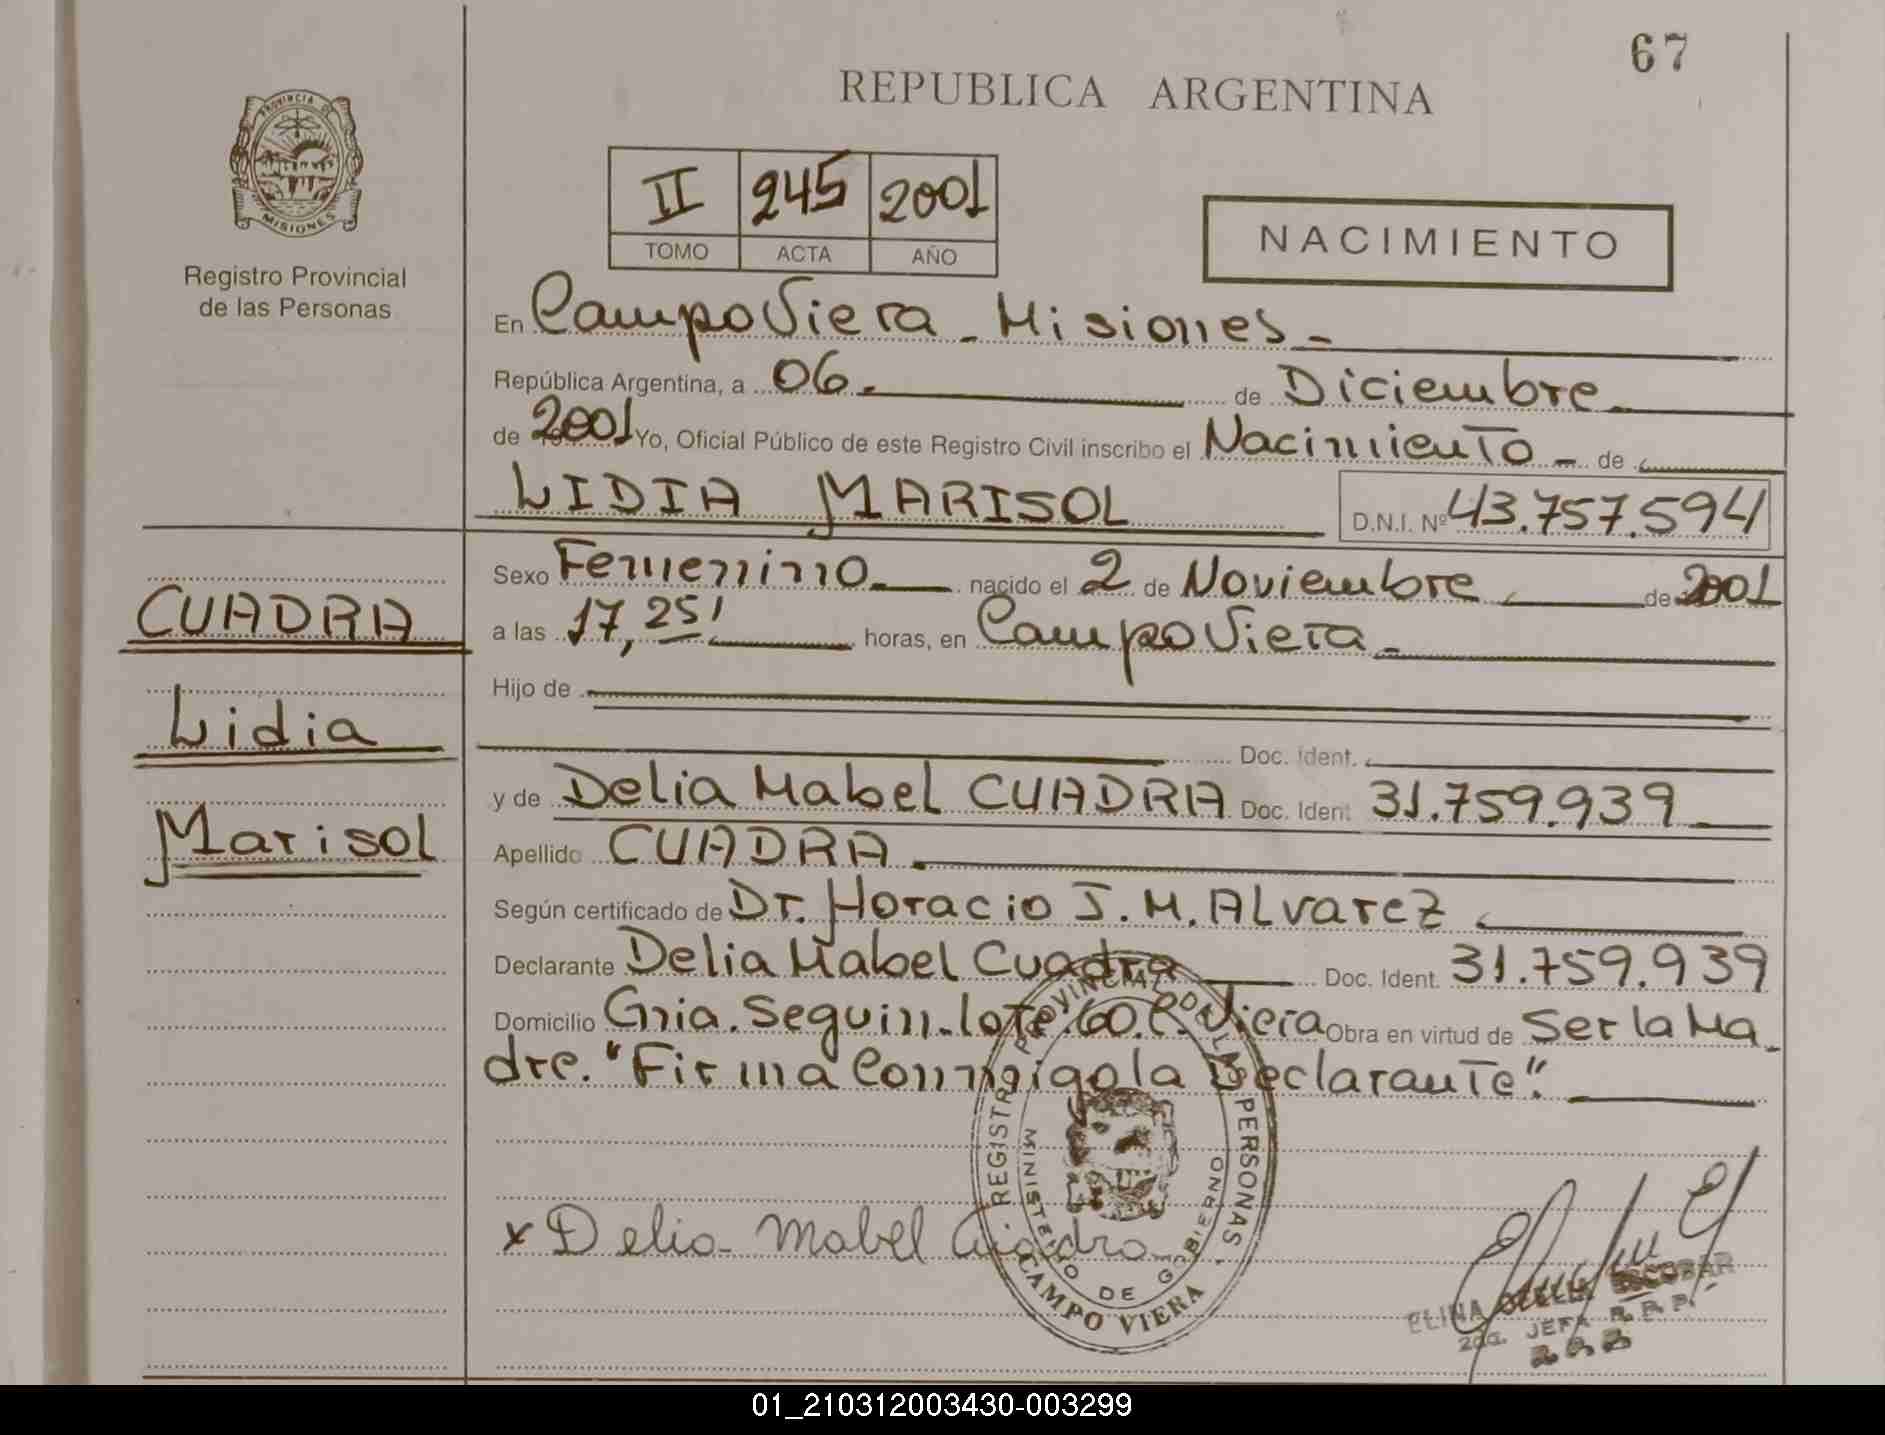 67
REPUBLICA ARGENTINA
PROVINCIA DE
MISIONES
Registro Provincial
de las Personas
II 245 2001
TOMO ACTA AÑO
NACIMIENTO
En Campo Viera - Misiones -
República Argentina, a 06. de Diciembre
de 2001 Yo, Oficial Público de este Registro Civil inscribo el Nacimiento - de
LIDIA MARISOL D.N.I. Nº 43.757.594
Sexo Femenino nacido el 2 de Noviembre de 2001
CUADRA
a las 17,25' horas, en Campo Viera -
Hijo de
Lidia
Doc. Ident.
y de Delia Mabel CUADRA Doc. Ident 31.759.939
Marisol
Apellido CUADRA
Según certificado de Dr. Horacio J. M. Alvarez
Declarante Delia Mabel Cuadra Doc. Ident. 31.759.939
Domicilio Gnia. Seguin. lote 60. C. Viera Obra en virtud de Ser la Ma
dre. "Firma Conmigo la Declarante".
REGISTRO PROVINCIAL DE LAS PERSONAS
MINISTERIO DE GOBIERNO
CAMPO VIERA
x Delia Mabel Cuadra
ELINA ESCOBAR
2da. JEFA R.P.P.
01_210312003430-003299